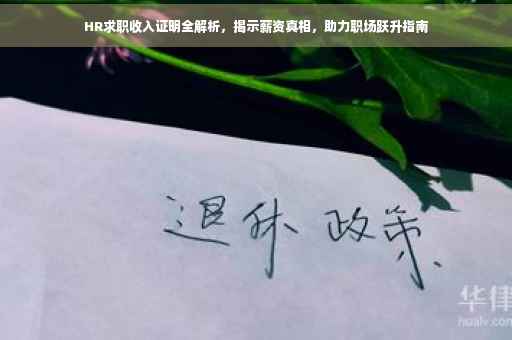 HR求职收入证明全解析，揭示薪资真相，助力职场跃升指南
退休 政策
华律
hualv.com